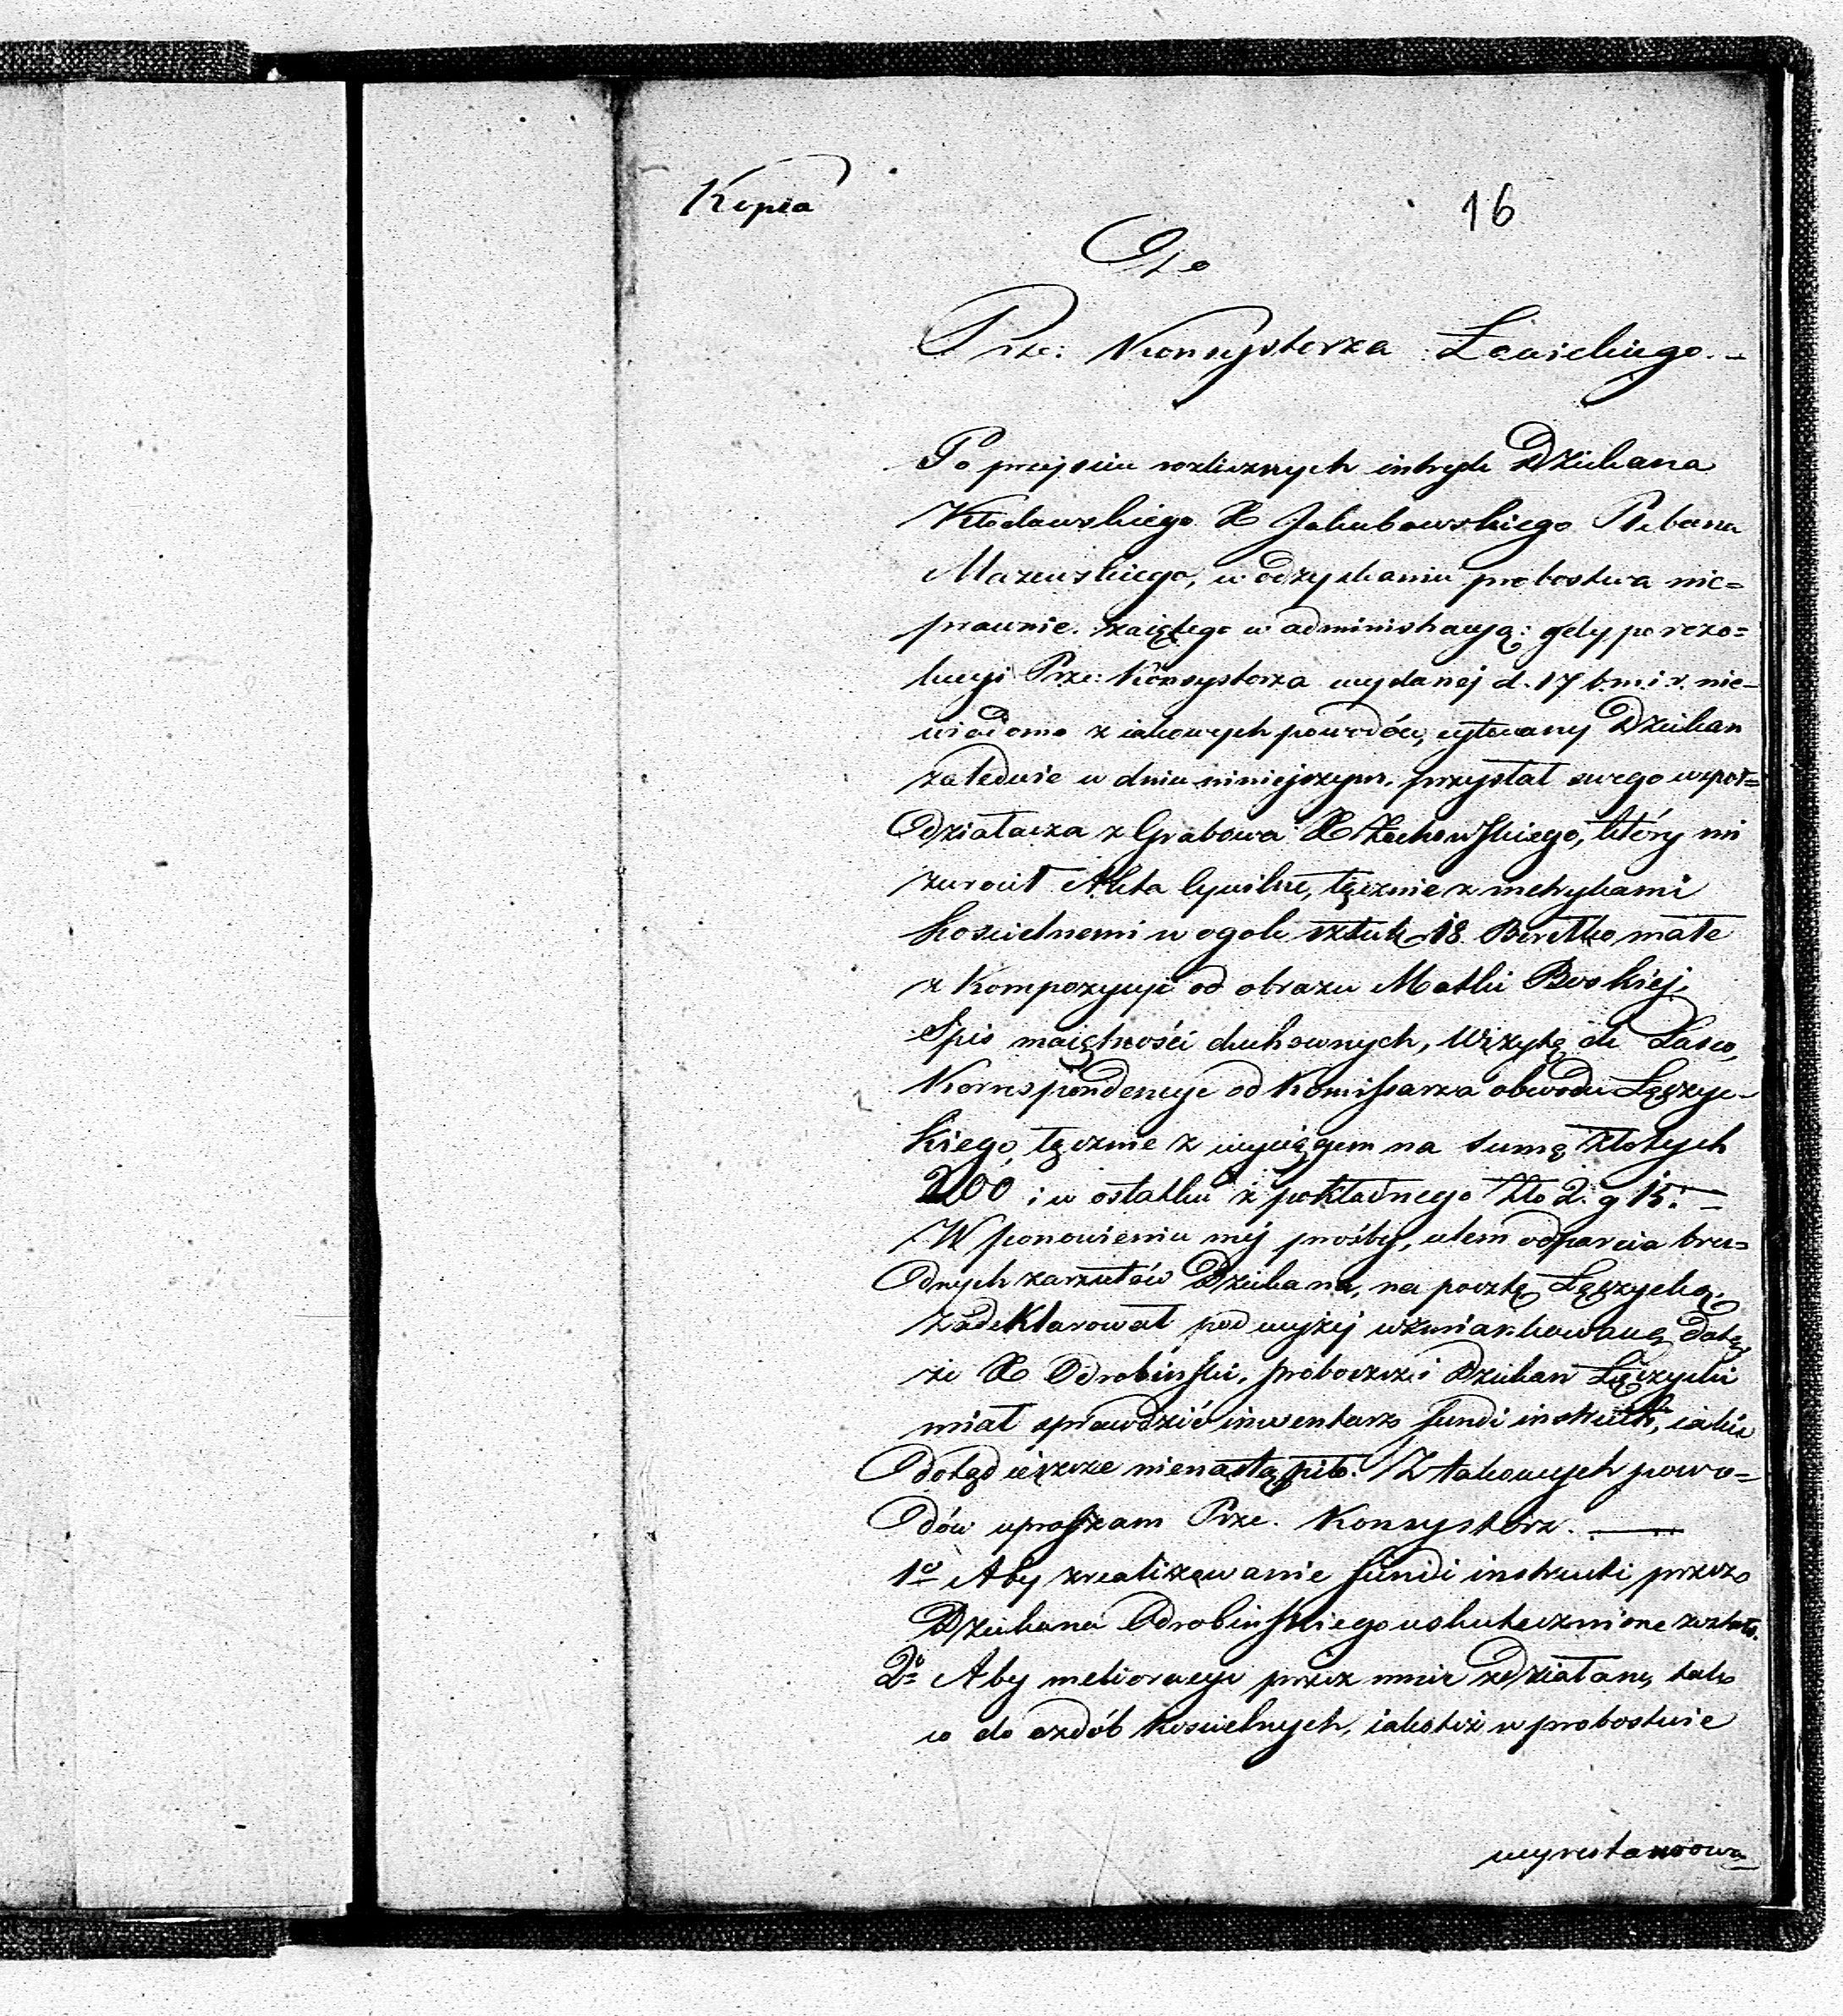 Kopia
16
Do
Prze: Konsystorza Łowickiego. –
Po przejściu rozlicznych intryk Dziekana
Kłodawskiego X Jakubowskiego Plebana
Mazewskiego, w odzyskaniu probostwa nie=
prawnie zaiętego w administracyą: gdy po rezo=
lucyi Prze: Konsystorza wydanej d. 17 b. m. i r. nie=
wiadomo z iakowych powodów, cytowany Dziekan
zaledwie w dniu niniejszym, przysłał swego wspoł=
działacza z Grabowa X Żochowskiego, który mi
zwrócił Akta Cywilne, łącznie z metrykami
Kościelnemi w ogole sztuk 18. Berełko małe
z Kompozycyi od obrazu Matki Boskiej.
Spis maiętności duchownych, Wizytę de Lasco,
Korrespondencye od Komissarza obwodu Łęczyc=
kiego, łącznie z wyciągem na summę złotych
200 i w ostatku z pokładnego Zło 2. g 15. –
W ponowieniu mej prośby, celem odparcia bru=
dnych zarzutów Dziekana, na pocztę Łęczycką
zadeklarował pod wyżej wzmiankowaną datą
że X Odrobiński, proboszcz i Dziekan Łęczycki
miał sprawdzić inwentarz fundi instructi, iakie
dotąd ieszcze nienastąpiło. Z takowych powo=
dów upraszam Prze. Konsystorz. ——
1º Aby zrealizowanie fundi instructi przez
Dziekana Odrobińskiego uskutecznione zostało.
2º Aby melioracye przez mnie zdziałane, tak
co do ozdób Kościelnych, iakoteż w probostwie
wyrestaurowa